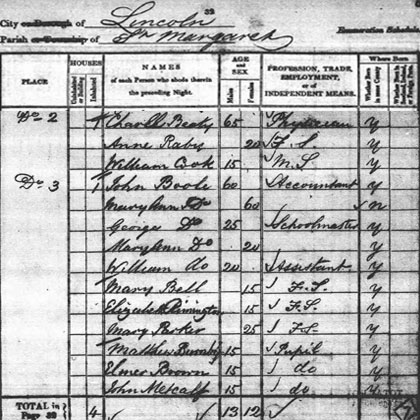 32
City or Borough of Lincoln
Parish or Township of St Margaret
Enumeration Schedule
PLACE HOUSES NAMES of each Person who abode therein the preceding Night. AGE and SEX PROFESSION, TRADE, EMPLOYMENT, or of INDEPENDENT MEANS. Where Born
Uninhabited or Building Inhabited Males Females Whether Born in same County
Do 2 1 65 Physician y
Anne 20 F. S. y
William Cook 15 M. S. y
Do 3 1 John Boole 60 Accountant y
Mary Ann Do 60 n
George Do 25 Schoolmaster y
Mary Ann Do 20 y
William do 20 Assistant y
Mary Bell 15 F. S. y
Elizabeth Rimington 15 F. S. y
Mary Parker 25 F. S. y
Matthew 15 Pupil y
Elmer Brown 15 do y
John Metcalf 15 do y
TOTAL in Page 32 4 13 12